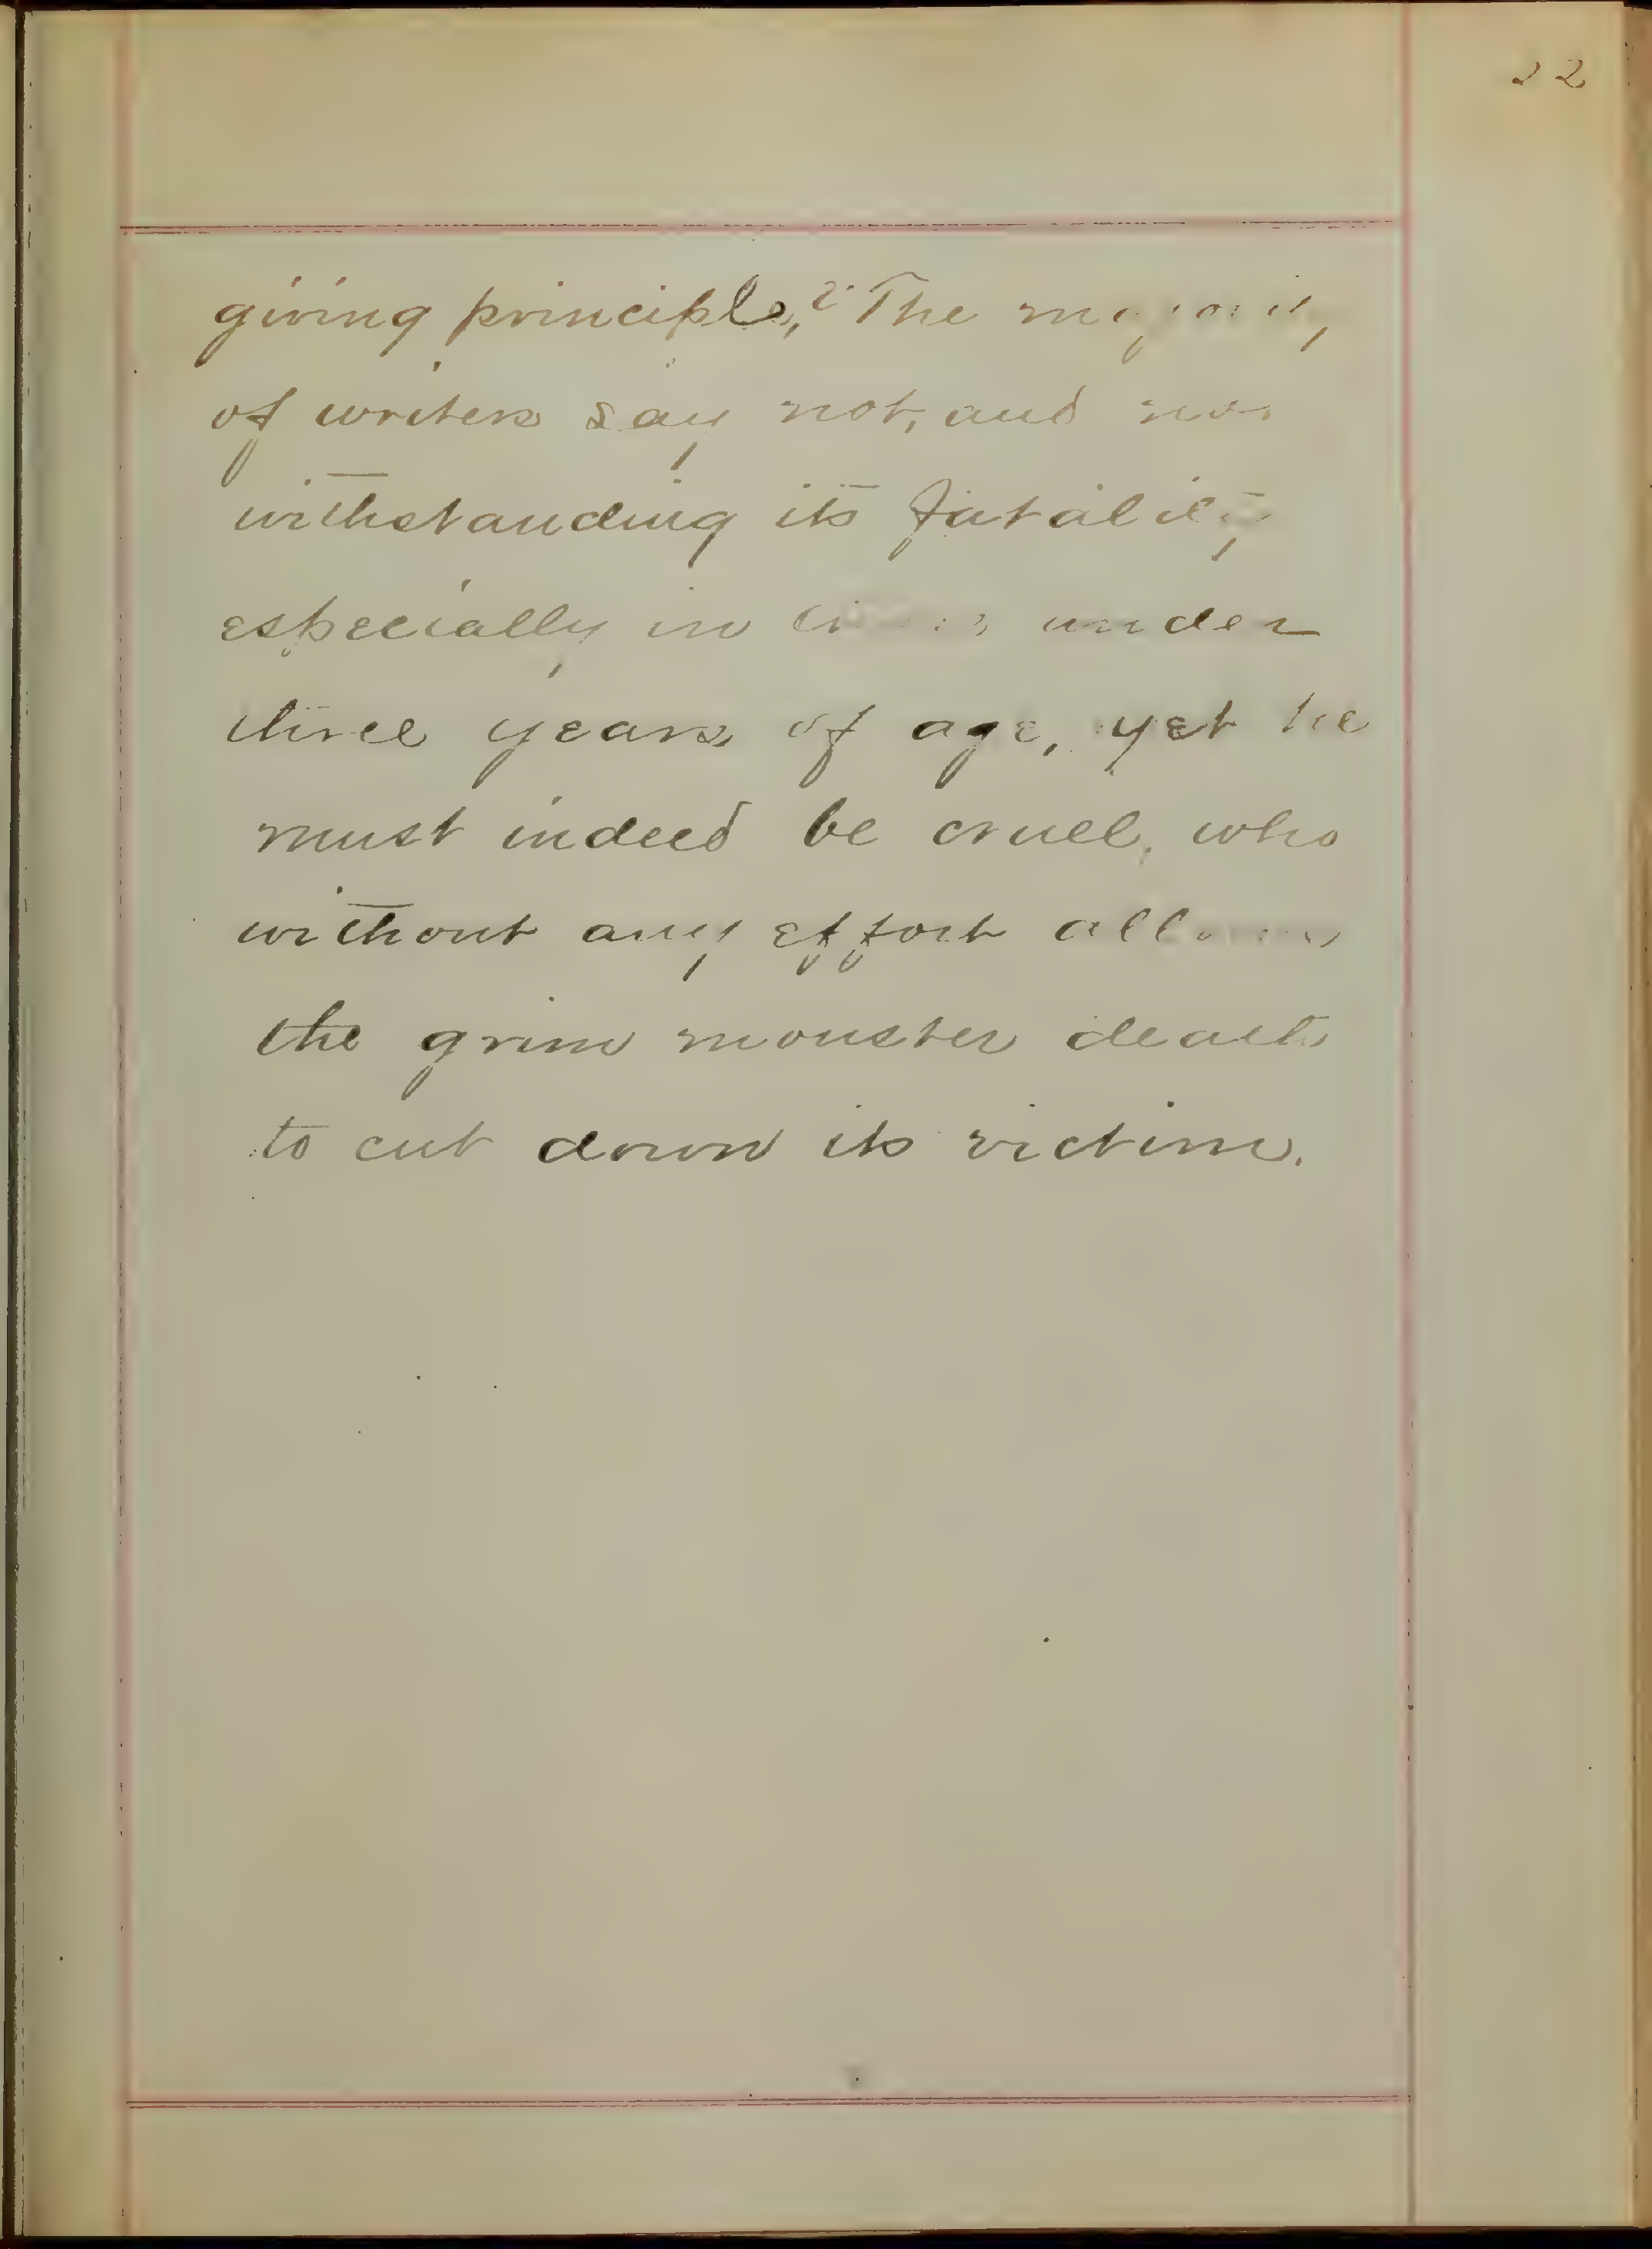 22
giving principle,? The majority
of writers say not, and no
withstanding its fatality
especially in under
three years of age, yet he
must indeed be cruel, who
without any effort allows
the grim monster death
to cut down its victim.